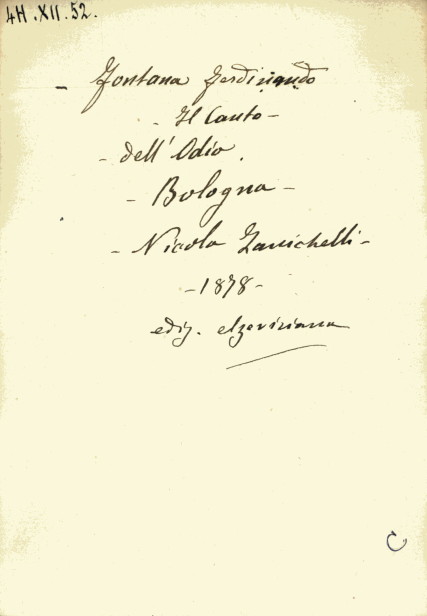 4H.XII.52.
- Fontana Ferdinando
- Il Canto -
- dell' Odio.
- Bologna -
- Nicola Zanichelli -
- 1878 -
ediz. elzeviriana
C